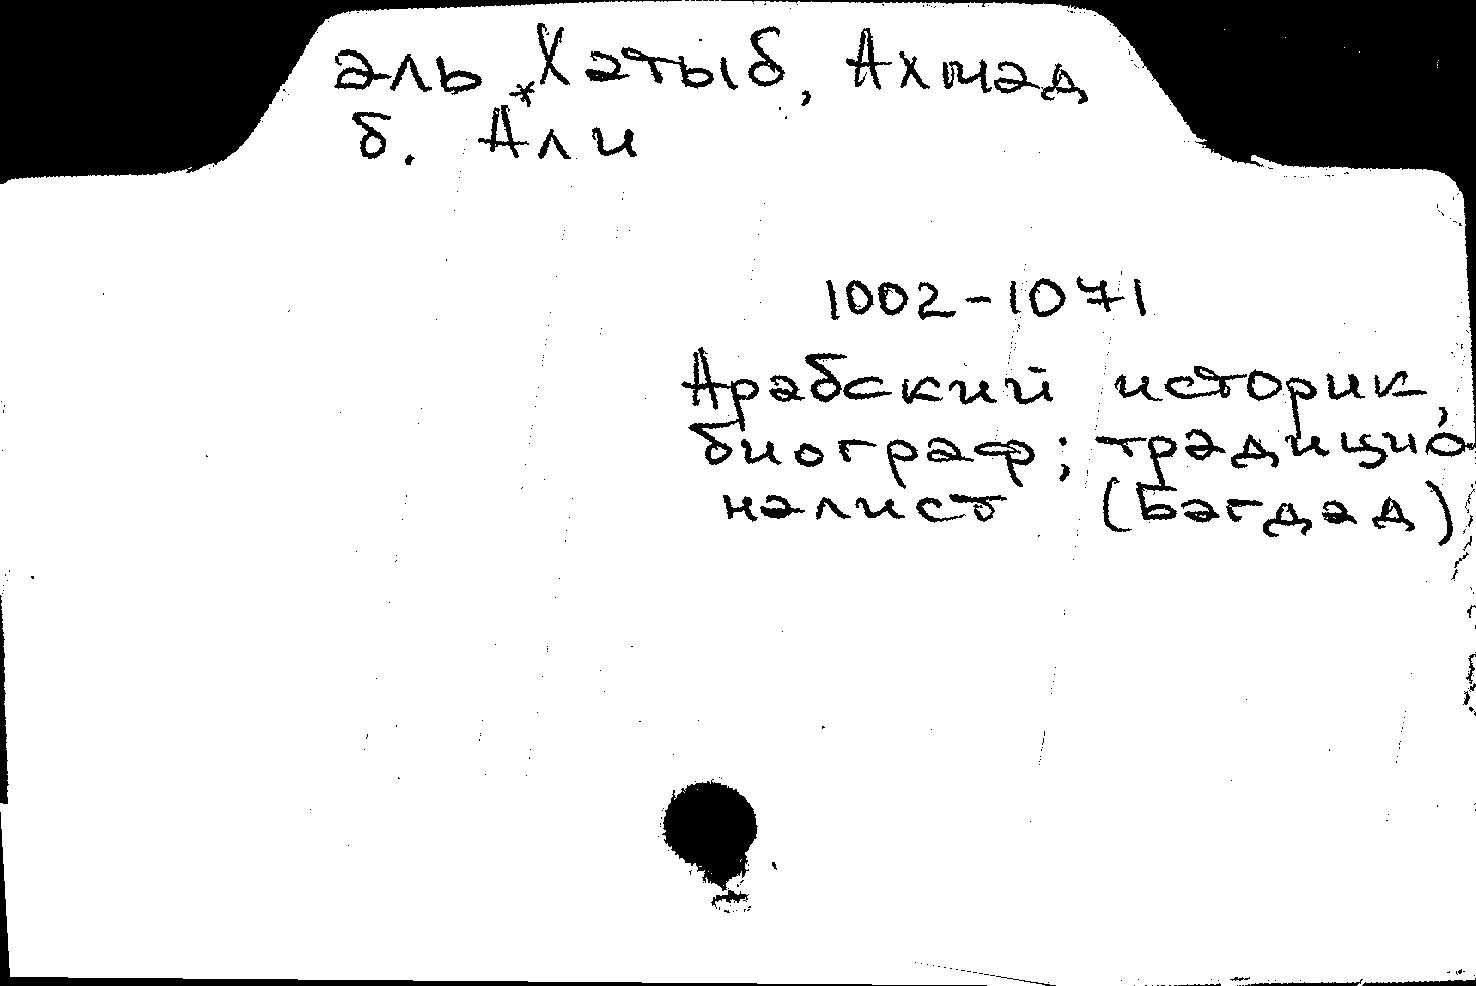 аль *Хатыб, Ахмад
б. Али
1002-1071
Арабский историк,
биограф; традицио-
налист (Багдад)